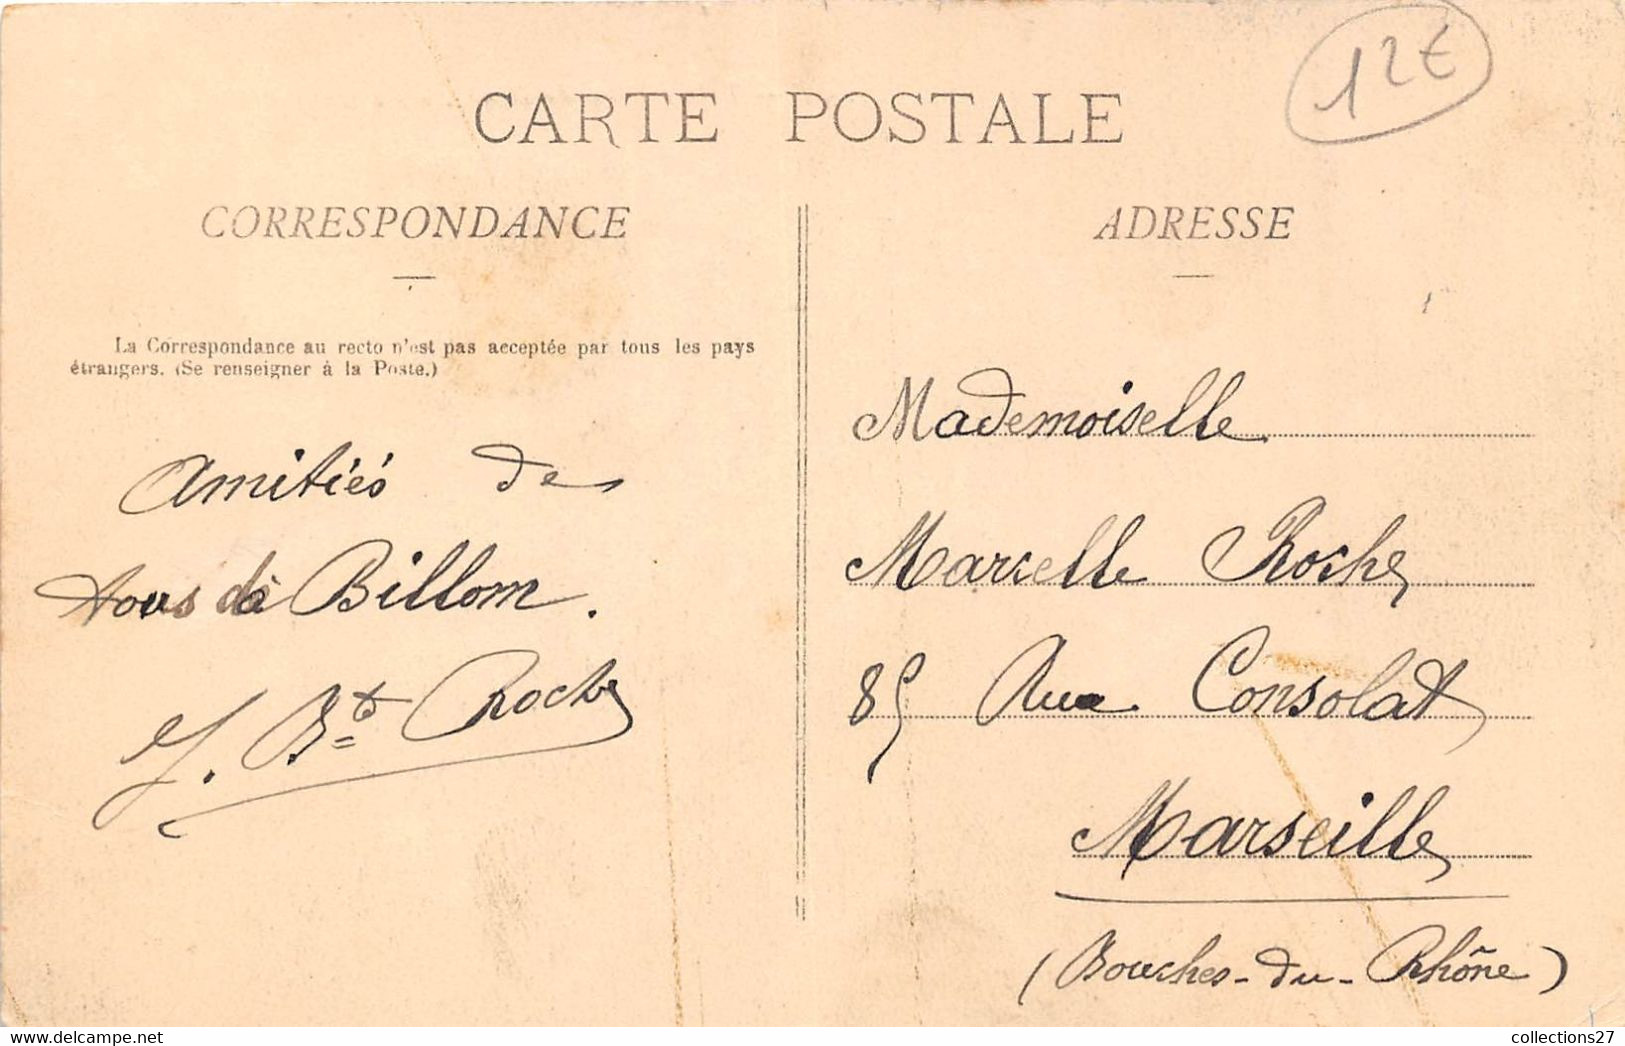 12€
CARTE POSTALE
CORRESPONDANCE
La Correspondance au recto n'est pas acceptée par tous les pays
étrangers. (Se renseigner à la Poste.)
Amitiés de
tous à Billom.
J. Bte Roche
ADRESSE
Mademoiselle
Marcelle Roche
85 Rue Consolat
Marseille
(Bouches-du-Rhône)
www.delcampe.net
collections27